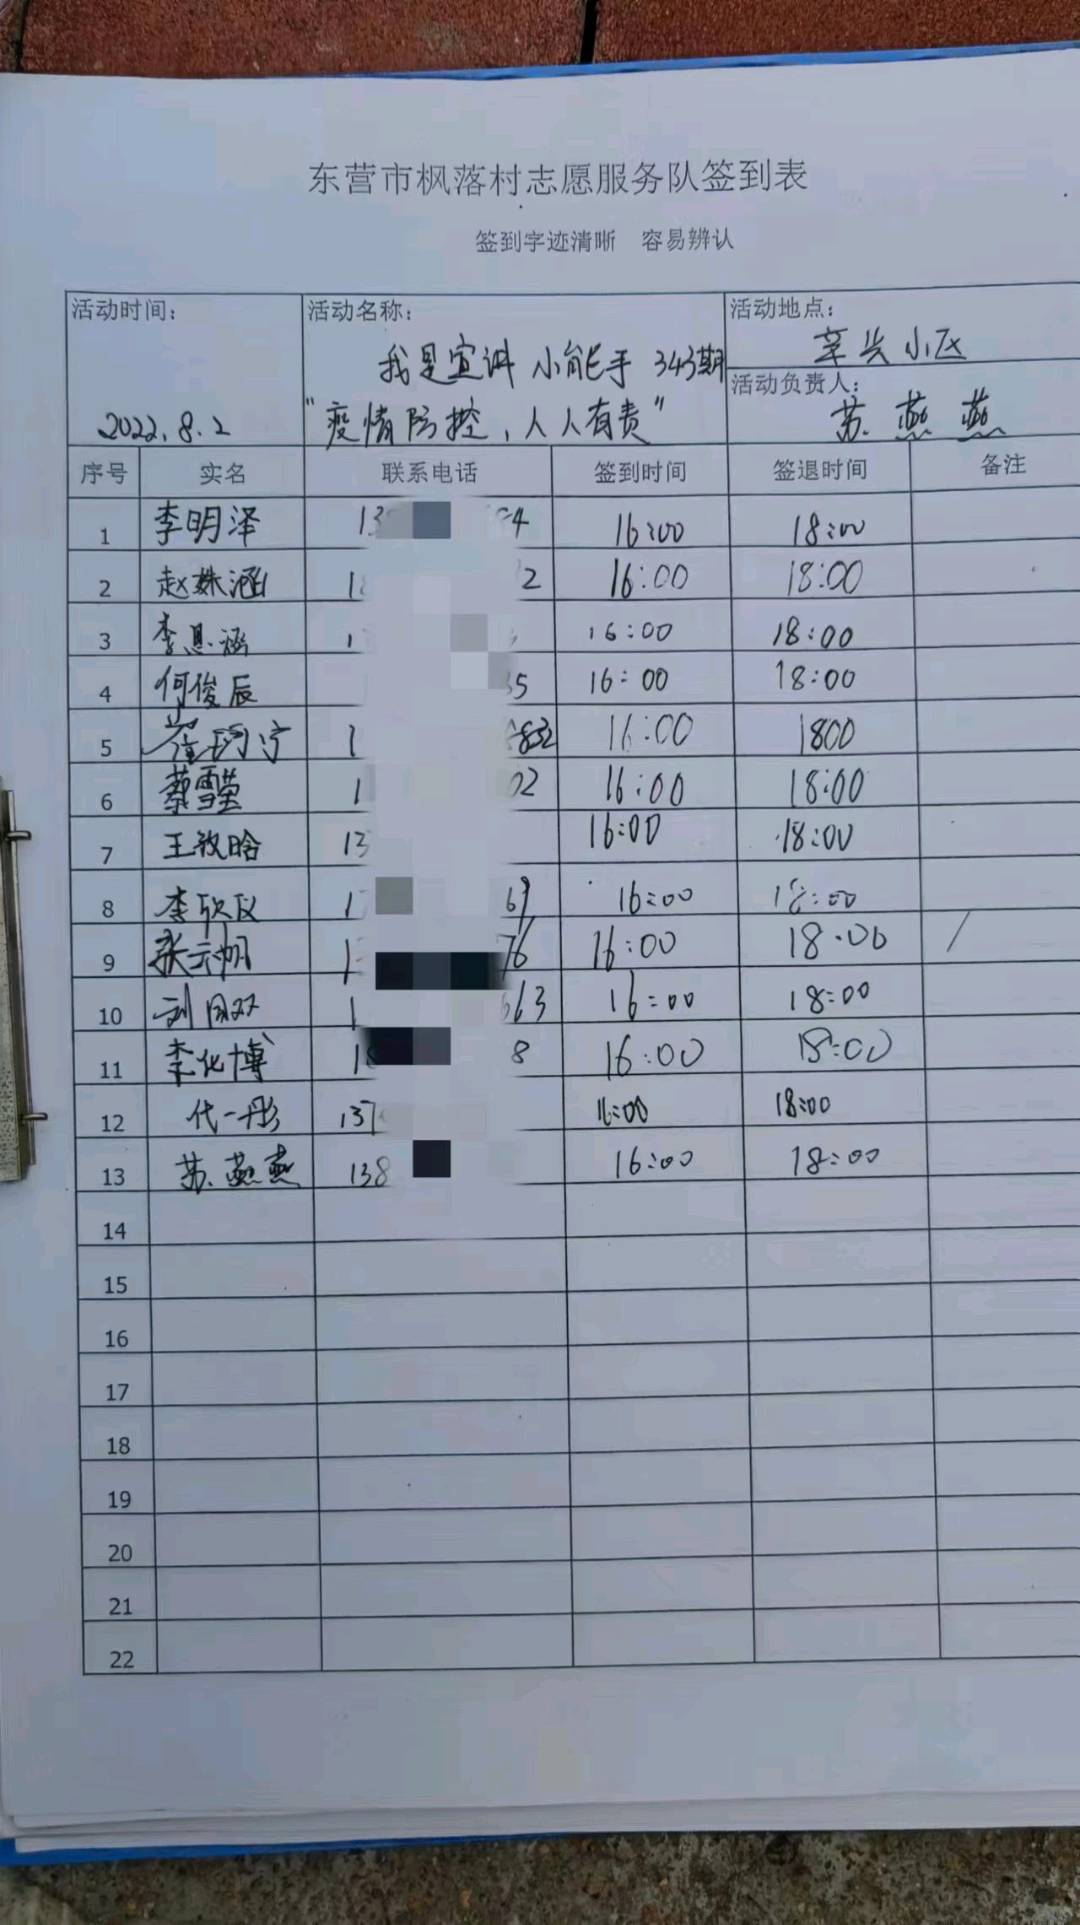 东营市枫落村志愿服务队签到表
签到字迹清晰 容易辨认
活动时间: 2022.8.2
活动名称: 我是宣讲小能手 343期
"疫情防控,人人有责"
活动地点: 辛兴小区
活动负责人: 苏燕燕
序号 实名 联系电话 签到时间 签退时间 备注
1 李明泽 13 84 16:00 18:00
2 赵姝涵 18 2 16:00 18:00
3 李恩涵 1 16:00 18:00
4 何俊辰 35 16:00 18:00
5 崔珂宁 1 832 16:00 1800
6 蔡雪莹 1 02 16:00 18:00
7 王晗 13 16:00 18:00
8 李欣仪 1 69 16:00 18:00
9 张云帆 1 76 16:00 18:00 /
10 刘 1 663 16:00 18:00
11 李化博 18 8 16:00 18:00
12 代一彤 137 16:00 18:00
13 苏燕燕 138 16:00 18:00
14
15
16
17
18
19
20
21
22